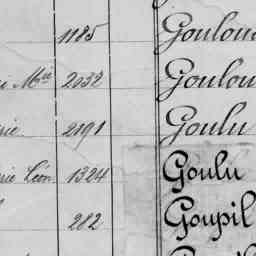 1185 Goulou
Mie 2032 Goulou
rie 2191 Goulu
rie Léon 1324 Goulu
282 Goupil